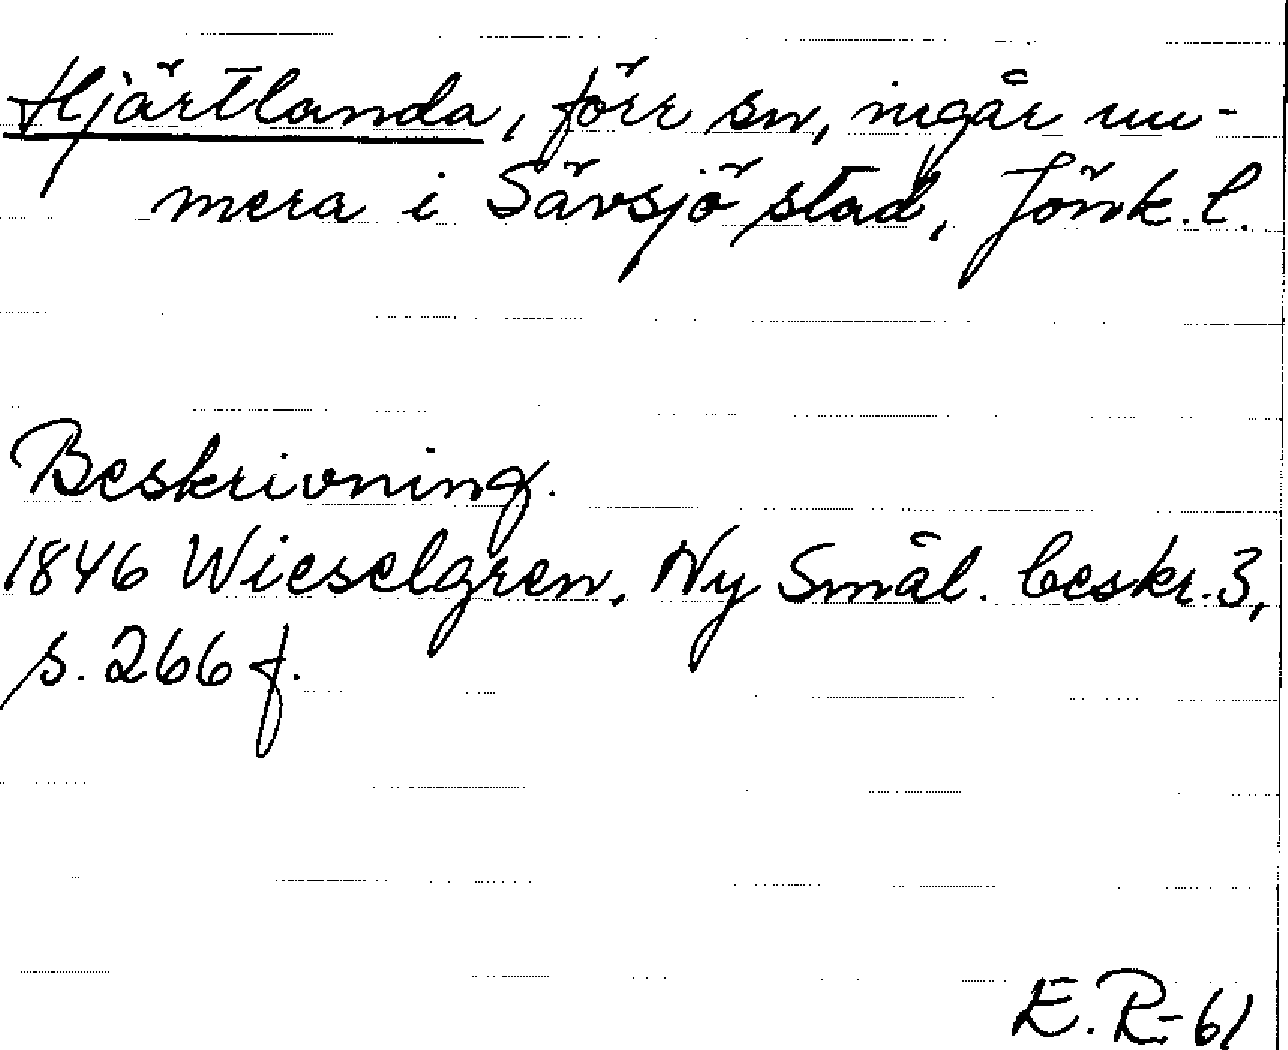 Hjärtlanda, förr sn, ingår nu-
mera i Sävsjö stad, Jönk. l.
Beskrivning.
1846 Wieselgren, Ny Smål. beskr. 3,
s. 266 f.
E.R-61